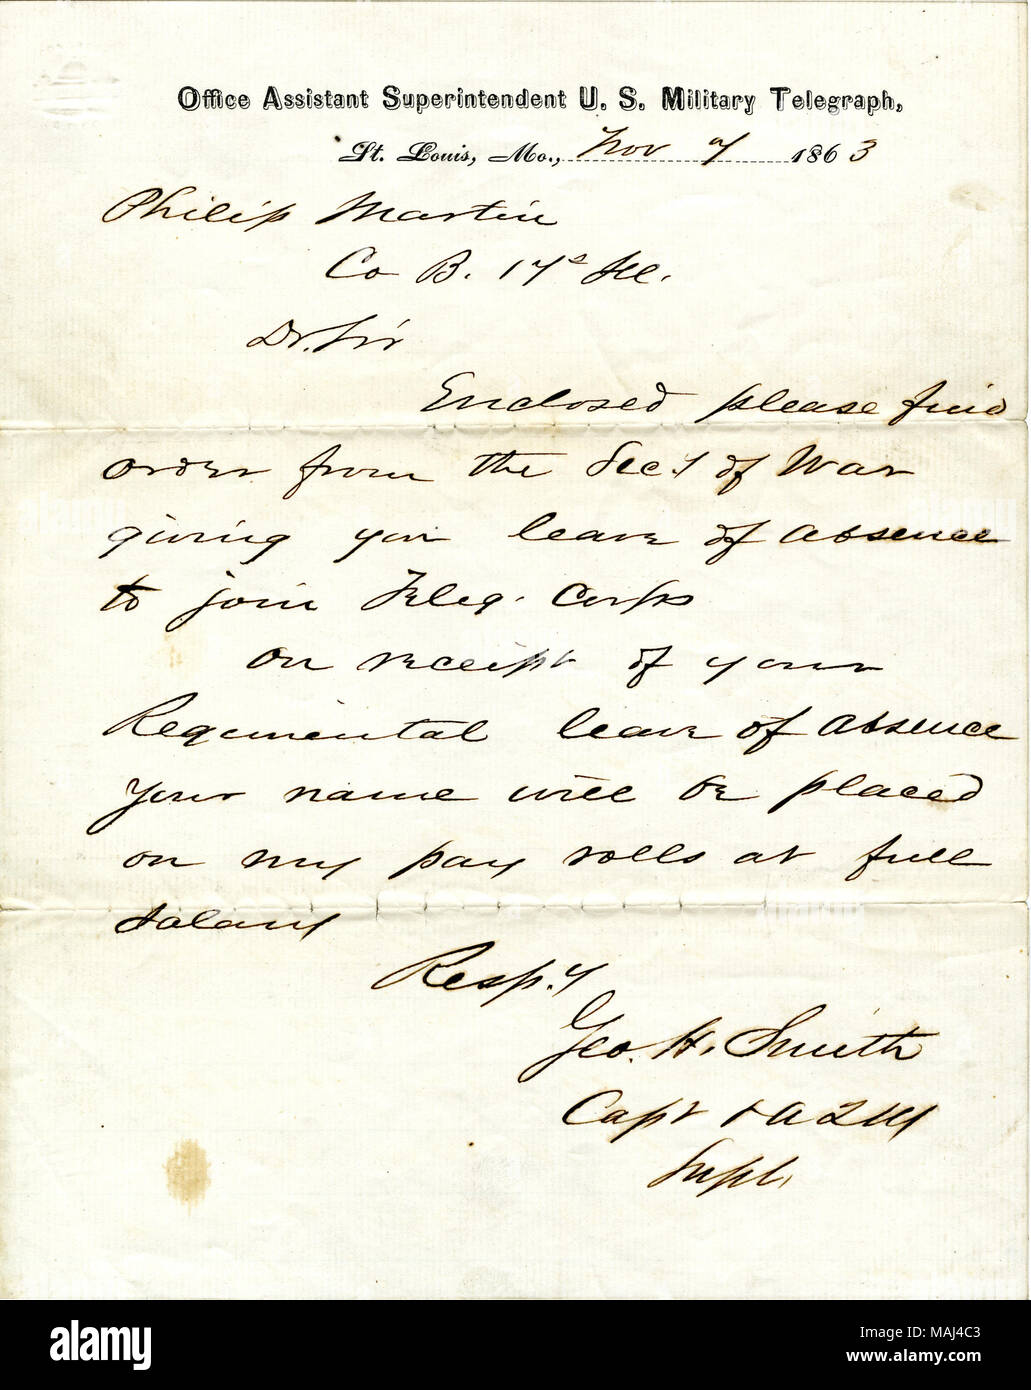 Office Assistant Superintendent U. S. Military Telegraph,
St. Louis, Mo., Nov 7 1863
Philip Martin
Co B. 17th Ill.
Dr. Sir
Enclosed please find
order from the Secy of War
giving you leave of absence
to join Teleg. Corps
On receipt of your
Regimental leave of absence
your name will be placed
on my pay rolls at full
salary
Respy
Geo. H. Smith
Capt & AQM
Supt.
alamy
Image ID: MAJ4C3
www.alamy.com